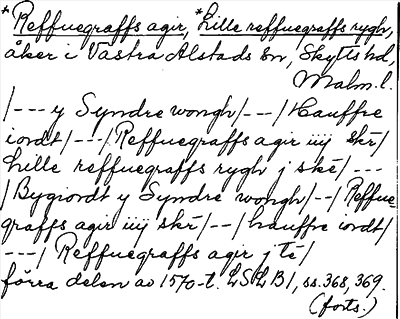 *Reffuegraffs agir, *Lille reffuegraffs rygh,
åker i Västra Alstads sn, Skytts hd,
Malm. l.
/--- y Syndre wongh/--/Hauffre
iordt/---/Reffuegraffs agir iiij skē/
Lille reffuegraffs rygh j skē/---
/Bygiordt y Syndre wongh/--/Reffue
graffs agir iiij skē/--/hauffre iordt/
---/Reffuegraffs agir j tē/
förra delen av 1570-t. LSLB1, ss. 368, 369.
(forts.)